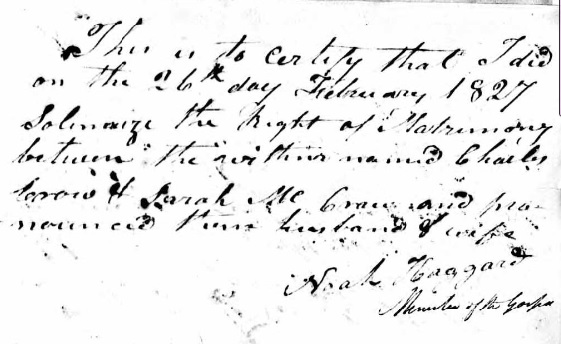 This is to certify that I did
on the 26th day February 1827
Solimnize the Right of Matrimony
between the within named Charles
Crow & Sarah Mc Craw and pro-
nounced them husband & wife
Noah Haggard
Minister of the Gospel